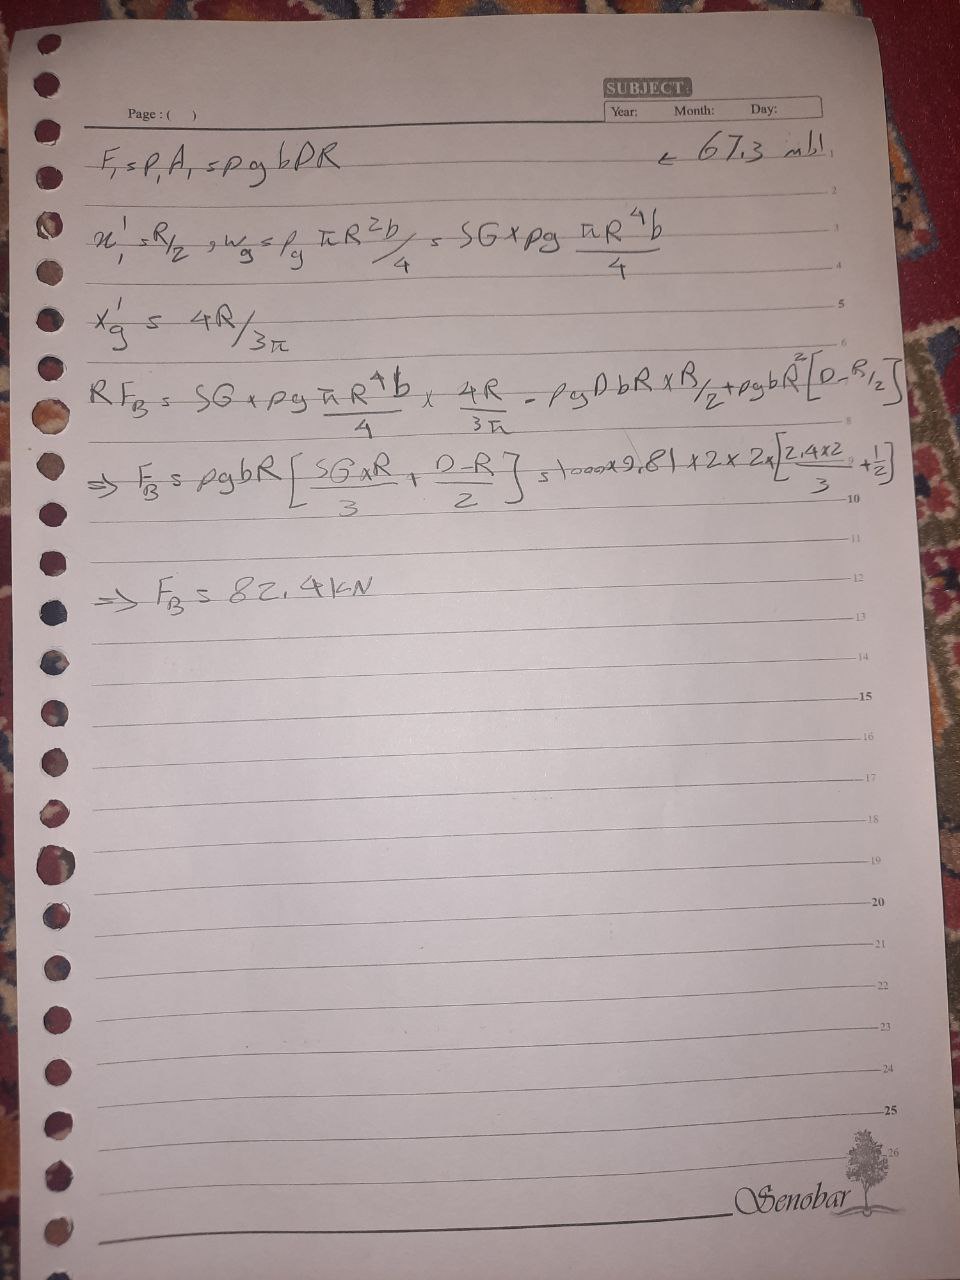 SUBJECT:
Page : (    )
Year: Month: Day:
← 67.3 مسئله
F₁ = P₁A₁ = ρgbDR
1
2
x₁' = R/2 , w_g = ρ_g πR²b/4 = SG × ρg πR⁴b/4
3
4
x_g' = 4R/3π
5
6
RF_B = SG × ρg πR⁴b/4 × 4R/3π - ρgDbR × R/2 + ρgbR²[D-R/2]
8
⇒ F_B = ρgbR [SG×R/3 + D-R/2] = 1000×9.81×2×2×[2.4×2/3 + 1/2]
9
10
11
⇒ F_B = 82.4 kN
12
13
14
15
16
17
18
19
20
21
22
23
24
25
26
Senobar